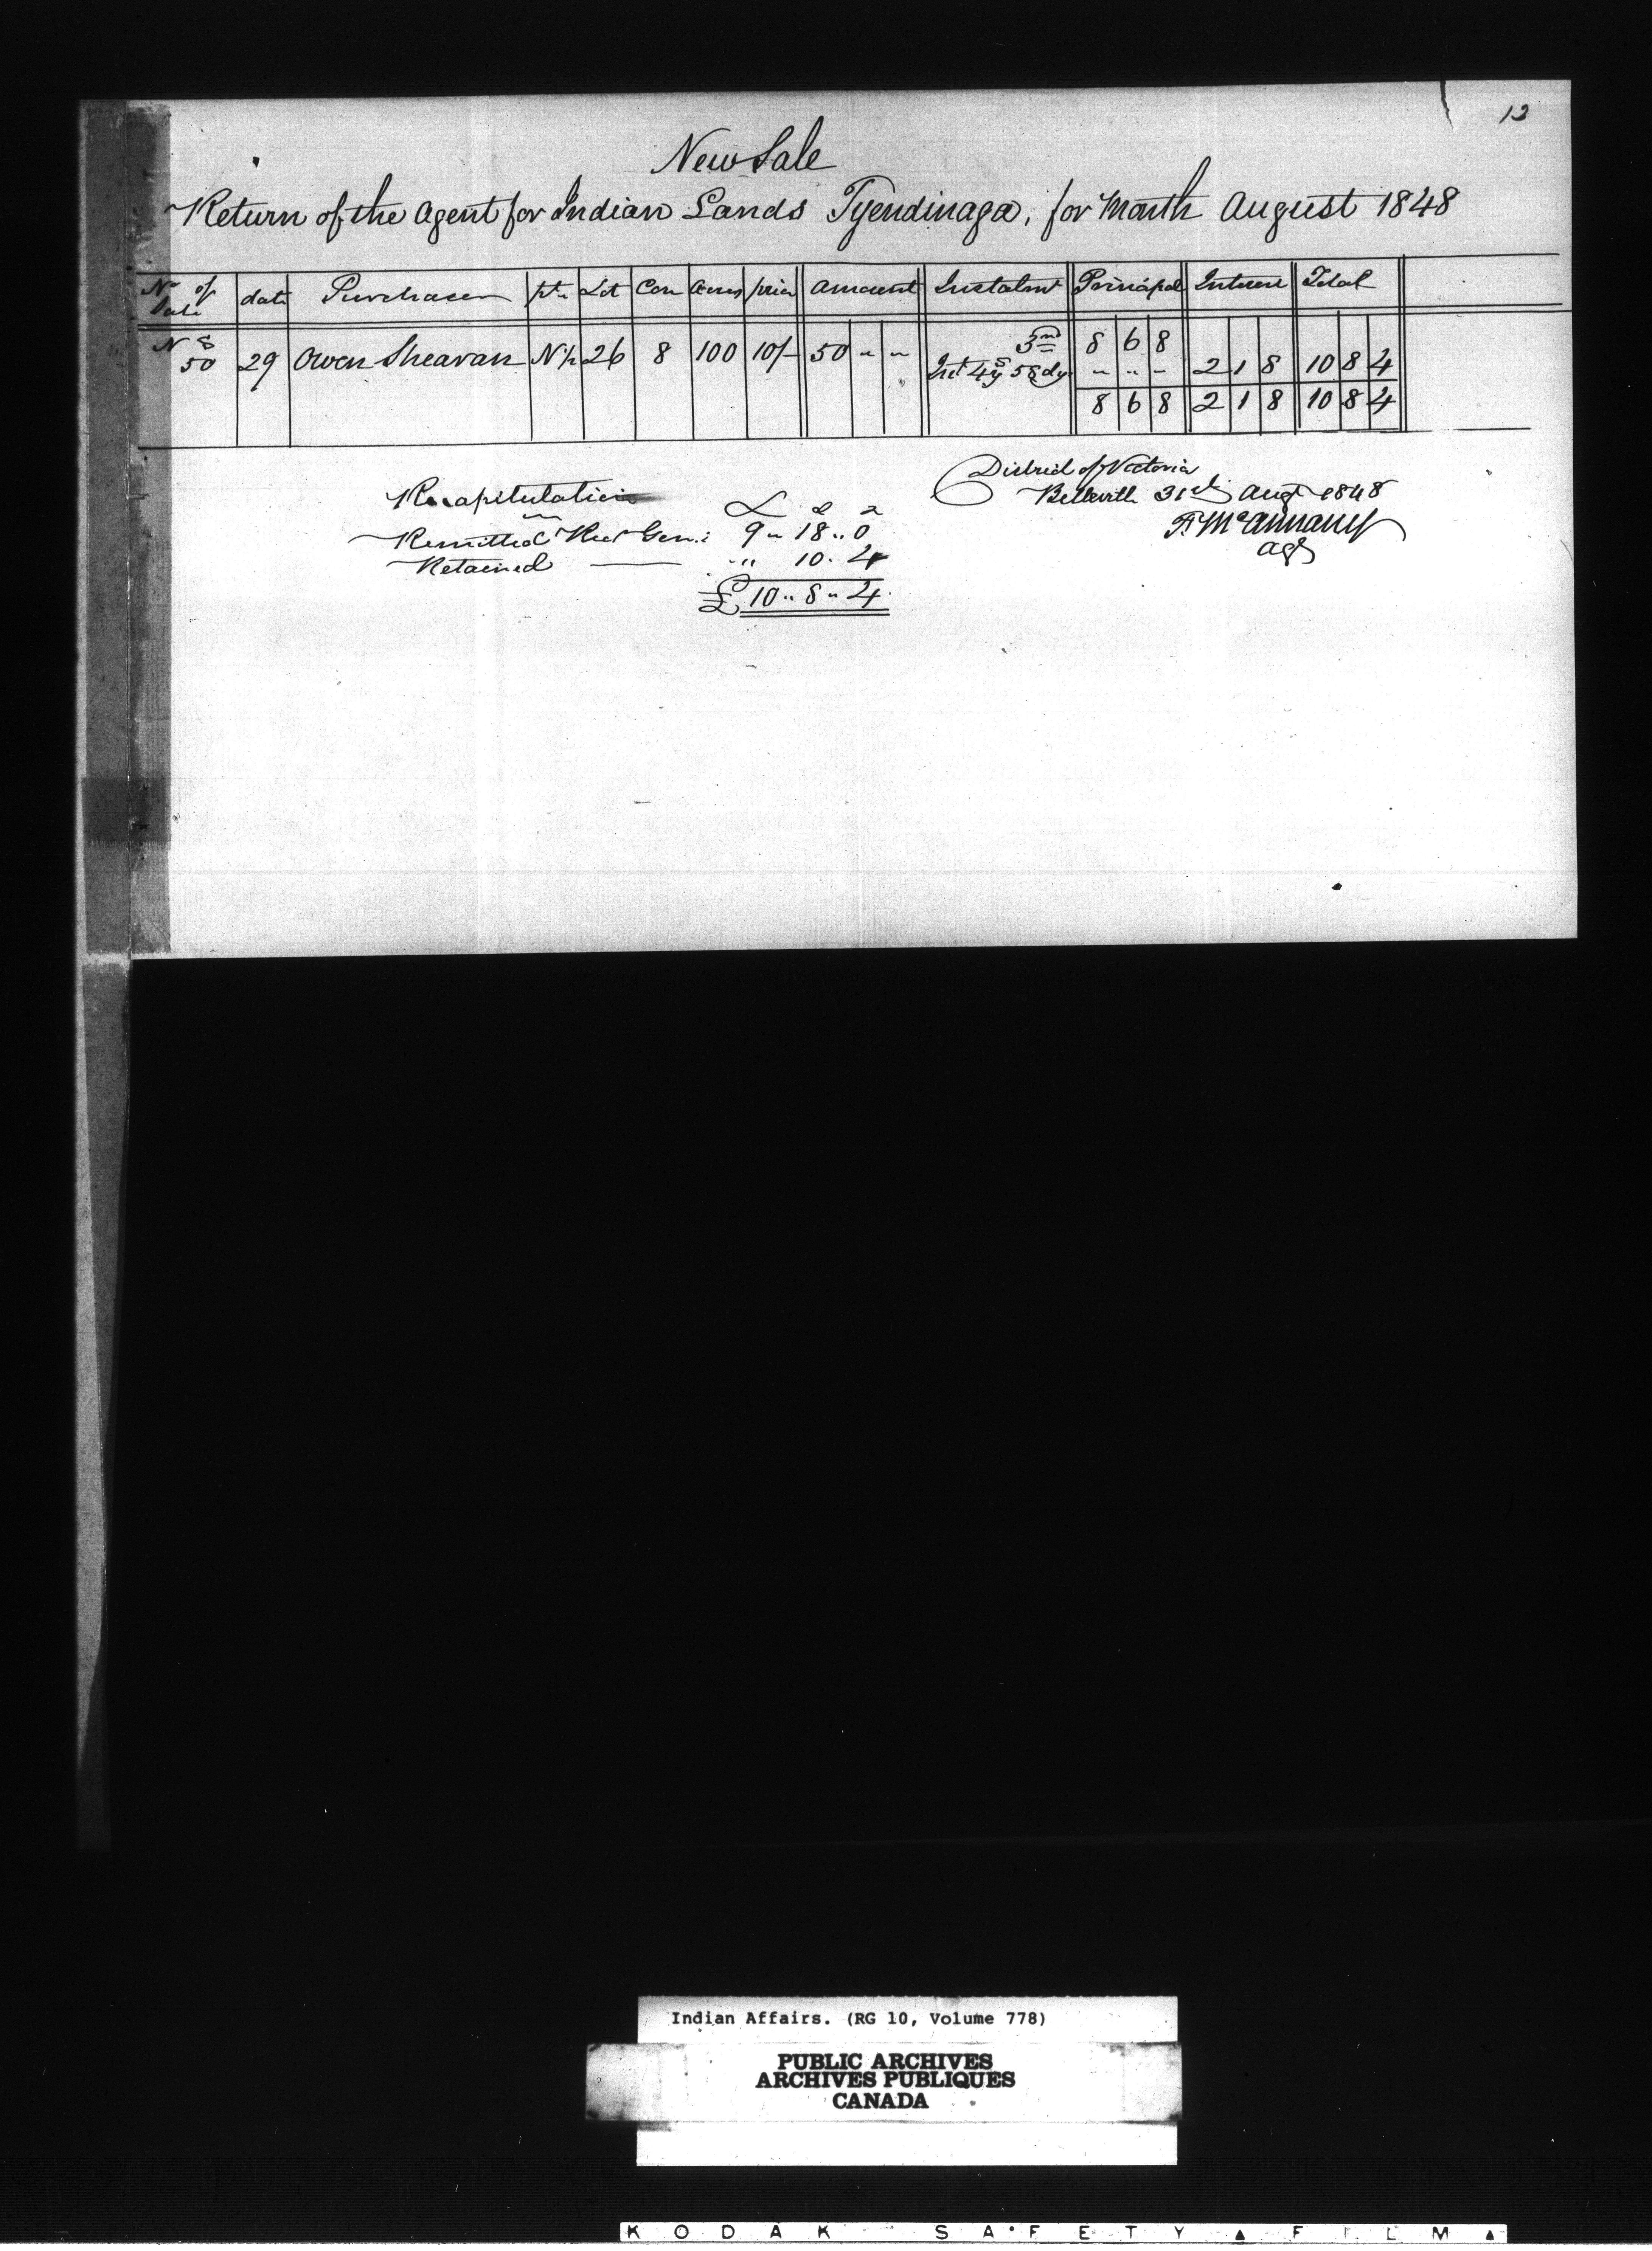 12
New Sale
Return of the Agent for Indian Lands Tyendinaga, for Month August 1848
No of Sale date Purchaser pt. Lot Con Acres price Amount Instalmt Principal Interest Total
N S 50 29 Owen Sheavan N½ 26 8 100 10/- 50 " " 3rd 8 6 8
Int 4ys 58dys " " - 2 1 8 10 8 4
8 6 8 2 1 8 10 8 4
District of Victoria
Belleville 31st Augt 1848
T. McAnnany
agt
Recapitulation
£ s d
Remitted Rec Gen: 9 " 18 " 0
Retained — " 10 . 4
£ 10 " 8 " 4
Indian Affairs. (RG 10, Volume 778)
PUBLIC ARCHIVES
ARCHIVES PUBLIQUES
CANADA
KODAK SAFETY FILM